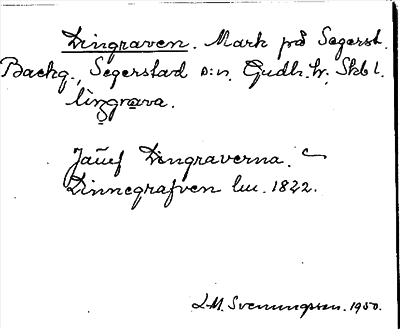 Lingraven. Mark på Segerst.
Backg., Segerstad s:n, Gudh. hr, Skbl.
lìngrava.
Jämf Lingraverna.
Linnegrafven lm. 1822.
L.M. Svenungsson. 1950.